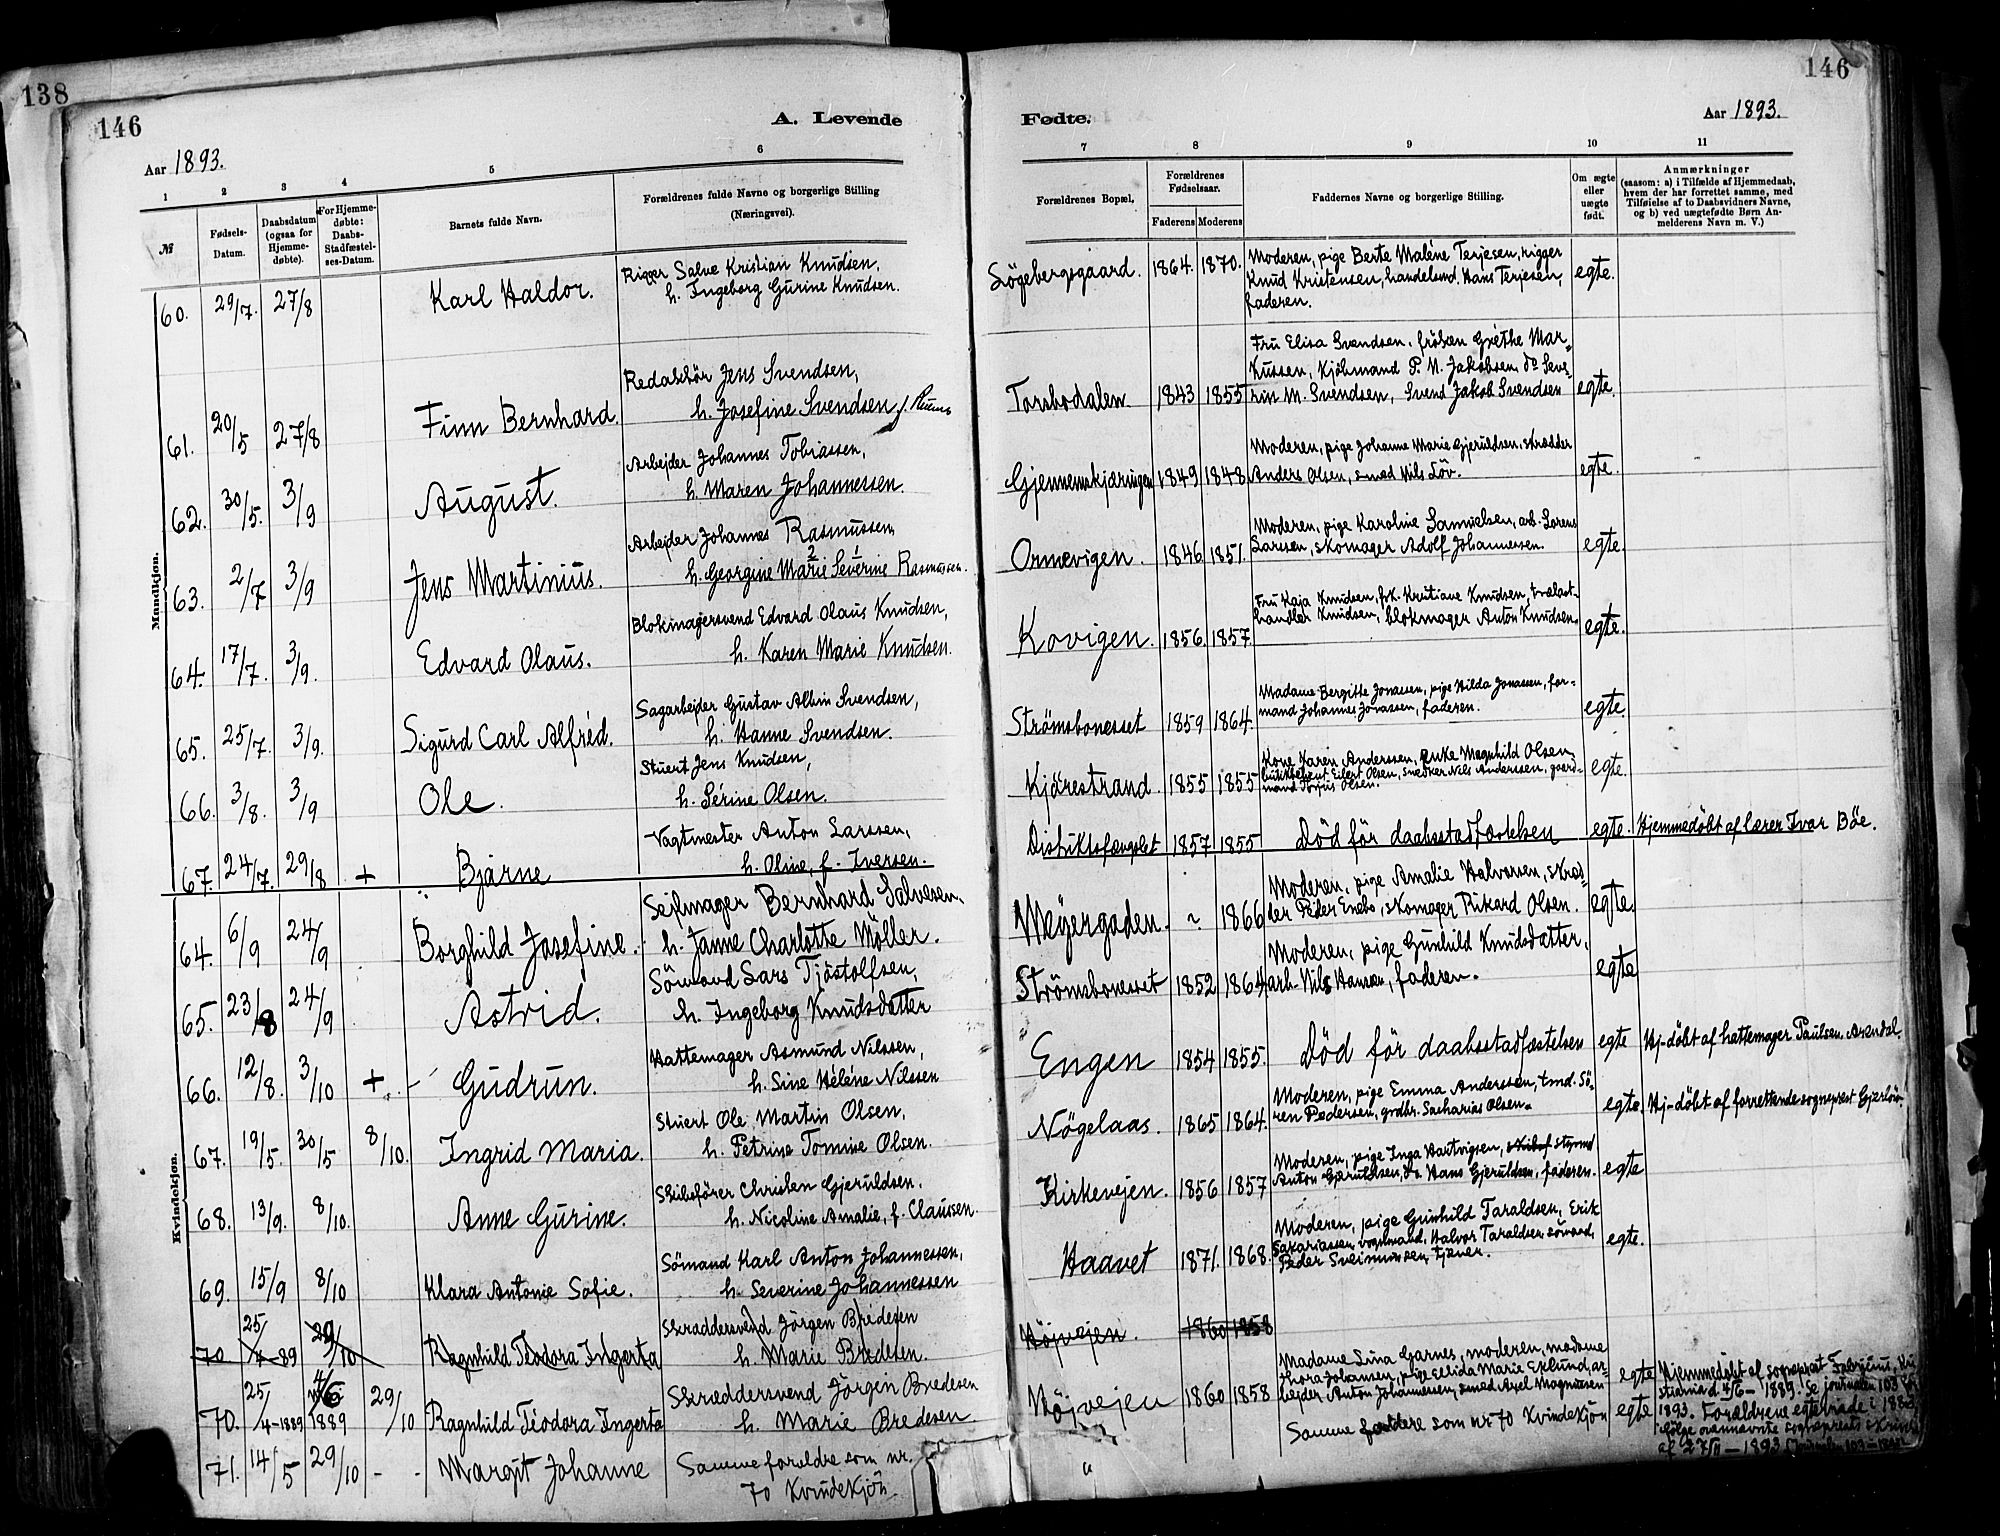 138
146
A. Levende
Aar 1893.
1
2
3
4
5
6
№
Fødsels-
Datum.
Daabsdatum
(ogsaa for
Hjemme-
døbte).
For Hjemme-
døbte:
Daabs-
Stadfæstel-
ses-Datum.
Barnets fulde Navn.
Forældrenes fulde Navne og borgerlige Stilling
(Næringsvei).
Mandkjøn.
60. 29/7. 27/8 Karl Haldor. Rigger Salve Kristian Knudsen,
h. Ingeborg Gurine Knudsen.
61. 20/5 27/8 Finn Bernhard. Redaktör Jens Svendsen,
h. Josefine Svendsen f.
62. 30/5. 3/9 August. Arbejder Johannes Tobiassen,
h. Maren Johannessen.
63. 2/7 3/9 Jens Martinius. Arbejder Johannes Rasmussen,
2 1
h. Georgine Marie Severine Rasmussen.
64. 17/7. 3/9. Edvard Olaus. Blokmagersvend Edvard Olaus Knudsen,
h. Karen Marie Knudsen.
65. 25/7. 3/9. Sigurd Carl Alfred. Sagarbejder Gustav Albin Svendsen,
h. Hanne Svendsen.
66. 3/8. 3/9 Ole. Stuert Jens Knudsen,
h. Serine Olsen.
67. 24/7. 29/8 + Bjarne Vagtmester Anton Larssen,
h. Oline, f. Iversen.
Kvindekjøn.
64. 6/9 24/9 Borghild Josefine. Sejlmager Bernhard Salvesen,
h. Janne Charlotte Möller.
65. 23/8 24/9 Astrid. Sömand Lars Tjöstolfsen,
h. Ingeborg Knudsdatter
66. 12/8. 3/10 + Gudrun. Hattemager Asmund Nilssen,
h. Sine Helene Nilssen
67. 19/5. 30/5 8/10. Ingrid Maria. Stuert Ole Martin Olsen,
h. Petrine Tomine Olsen.
68. 13/9. 8/10. Anne Gurine. Skibsförer Christen Gjeruldsen,
h. Nicoline Amalie, f. Claussen.
69. 15/9 8/10 Klara Antonie Sofie. Sömand Karl Anton Johannessen,
h. Severine Johannessen
70 25/4-89 29/10 Ragnhild Teodora Ingerta Skræddersvend Jörgen Bredesen
h. Marie Bredesen.
70. 25/4-1889 4/6 1889 29/10 Ragnhild Teodora Ingerta Skræddersvend Jörgen Bredesen
h. Marie Bredesen
71. 14/5 29/10 - - Margit Johanne Samme foreldre som nr.
70 Kvindekjön
146
Fødte.
Aar 1893.
7
8
9
10
11
Forældrenes Bopæl.
Forældrenes
Fødselsaar.
Faderens Moderens
Faddernes Navne og borgerlige Stilling.
Om ægte
eller
uægte
født.
Anmærkninger
(saasom: a) i Tilfælde af Hjemmedaab,
hvem der har forrettet samme, med
Tilføielse af to Daabsvidners Navne,
og b) ved uægtefødte Børn An-
melderens Navn m. V.)
Lögebergsgaard. 1864. 1870. Moderen, pige Berte Malene Terjesen, rigger
Knud Kristensen, handelsmd. Hans Terjesen,
faderen. egte.
Torsbodalen 1843 1855 Fru Elisa Svendsen, fröken Grethe Mar-
kussen, Kjöbmand P. M. Jakobsen, do Seve-
rin M. Svendsen, Svend Jakob Svendsen egte.
Gjennemskjæringen 1849 1848 Moderen, pige Johanne Marie Gjeruldsen, skrædder
Anders Olsen, smed Nils Löv. egte.
Ormevigen. 1846 1851. Moderen, pige Karoline Samuelsen, arb. Sorens
Larssen, skomager Adolf Johannessen. egte.
Kovigen. 1856 1857. Fru Kaja Knudsen, frk. Kristiane Knudsen, trælast-
handler Knudsen, blokmager Anton Knudsen. egte.
Strömsbonesset 1859 1864. Madame Bergitte Jonassen, pige Hilda Jonassen, for-
mand Johannes Jonassen, faderen. egte.
Kjörestrand. 1855 1855 Kone Karen Anderssen, enke Magnhild Olsen,
Eilert Olsen, snedker Nils Anderssen, gaard-
mand Olsen. egte.
Distriktsfængslet 1857 1855 Död för daabsstadfæstelsen egte. Hjemmedöbt af lærer Ivar Böe.
Meyergaden. ~ 1866 Moderen, pige Amalie Halvorsen, skræd-
der Peder Enebo, skomager Rikard Olsen. egte.
Strömsbonesset 1852 1864 Moderen, pige Gunhild Knudsdatter,
arb. Nils Hansen, faderen. egte
Engen 1854 1855. Död för daabsstadfæstelsen egte Hj-döbt af hattemager Paulsen, Arendal.
Nögelaas. 1865 1864. Moderen, pige Emma Anderssen, tmd. Sö-
ren Pedersen, grdbr. Sacharias Olsen. egte Hj-döbt af forrettende sogneprest
Kirkevejen. 1856 1857 Moderen, pige Inga Hartvigsen, styrmd
Anton Gjeruldsen, do. Hans Gjeruldsen, faderen. egte
Haavet 1871. 1868. Moderen, pige Gunhild Taraldsen, Erik
Sakariassen vognmand, Halvor Taraldsen sömand,
Peder tjener. egte.
Höjvejen. 1860 1858
Höjvejen 1860 1858 Madame Lina Garnes, moderen, madame
Thora Johansen, pige Elida Marie Eklund, ar-
bejder Anton Johannessen, smed Axel Magnussen egte Hjemmedöbt af sogneprest Fabricius, Kri-
stiania d. 4/6 - 1889. Se journalen 103 for
1893. Forældrene egteviede i
ifölge ovennævnte sogneprests skrivelse
af 27/11 - 1893
" Samme faddere som nr 70 Kvindekjön egte